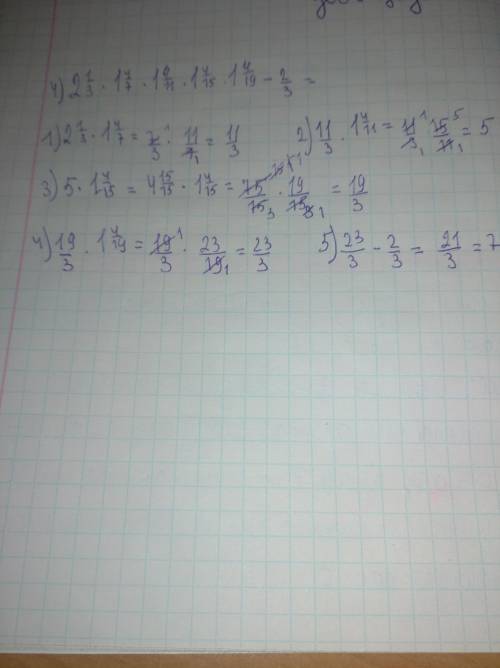 4) 2 1/3 · 1 4/7 · 1 4/11 · 1 4/15 · 1 4/19 − 2/3 =
1) 2 1/3 · 1 4/7 = 7/3 · 11/7 = 11/3 2) 11/3 · 1 4/11 = 11/3 · 15/11 = 5
3) 5 · 1 4/15 = 4 15/15 · 1 4/15 = 75/15 · 19/15 = 19/3
4) 19/3 · 1 4/19 = 19/3 · 23/19 = 23/3 5) 23/3 − 2/3 = 21/3 = 7